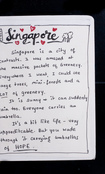 Singapore
Singapore is a city of
contrasts. I was amazed at
the massive pockets of greenery.
Everywhere I went I could see
huge trees, mini-forests and a
LOT of greenery.
It is sunny & it can suddenly
rain so. Everyone carries an
umbrella.
It's a bit like life - very
unpredictable. But you walk
through it carrying umbrellas
of HOPE.